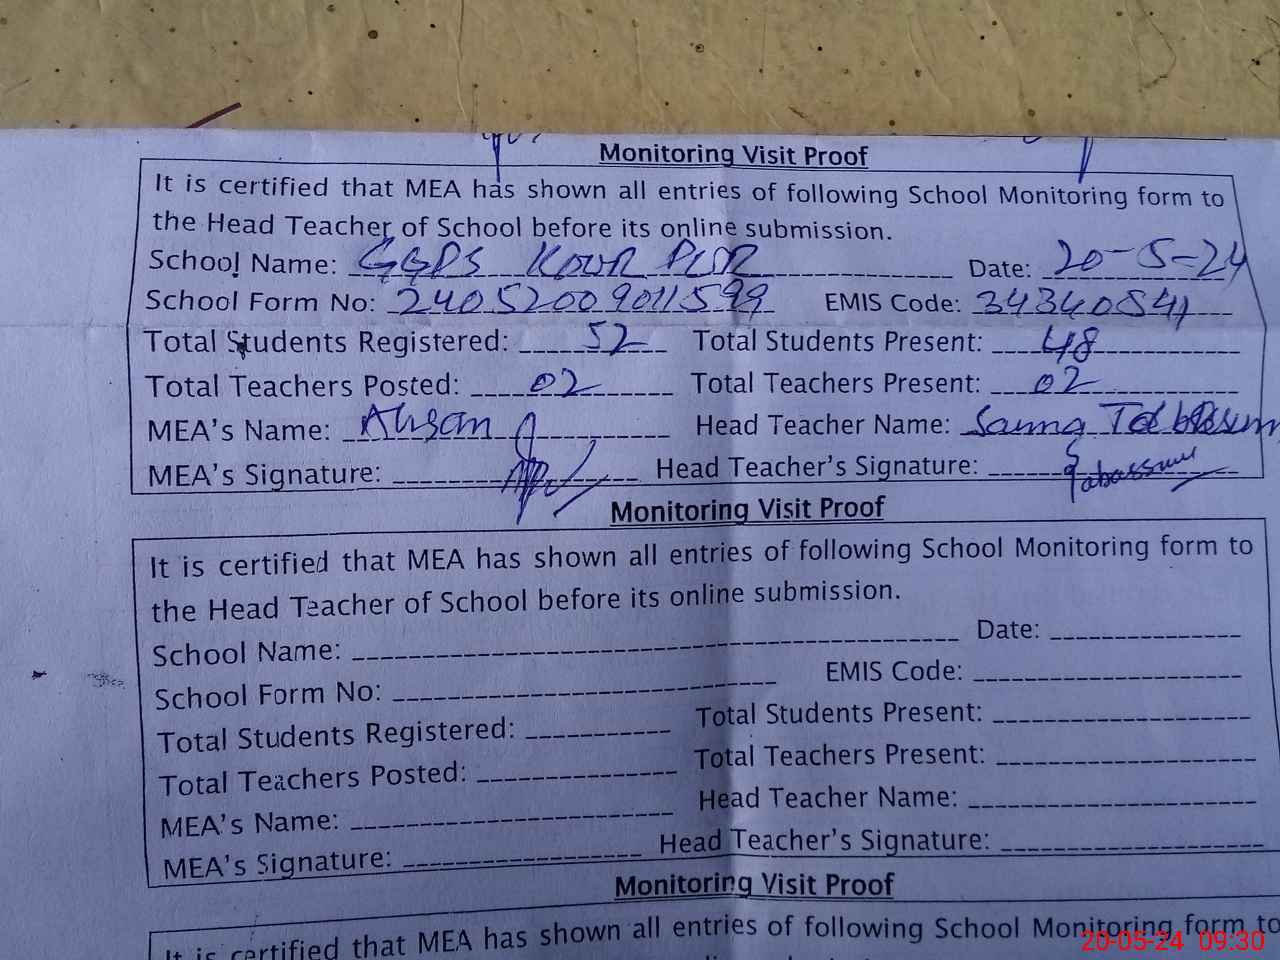 Monitoring Visit Proof
It is certified that MEA has shown all entries of following School Monitoring form to
the Head Teacher of School before its online submission.
School Name: GGPS KOUR PUR Date: 20-5-24
School Form No: 24052009011599 EMIS Code: 34340541
Total Students Registered: 52 Total Students Present: 48
Total Teachers Posted: 02 Total Teachers Present: 02
MEA's Name: Ahsan Head Teacher Name: Saima
MEA's Signature: Head Teacher's Signature: Tabassum
Monitoring Visit Proof
It is certified that MEA has shown all entries of following School Monitoring form to
the Head Teacher of School before its online submission.
School Name: Date:
School Form No: EMIS Code:
Total Students Registered: Total Students Present:
Total Teachers Posted: Total Teachers Present:
MEA's Name: Head Teacher Name:
MEA's Signature: Head Teacher's Signature:
Monitoring Visit Proof
It is certified that MEA has shown all entries of following School Monitoring form to
20-05-24 09:30